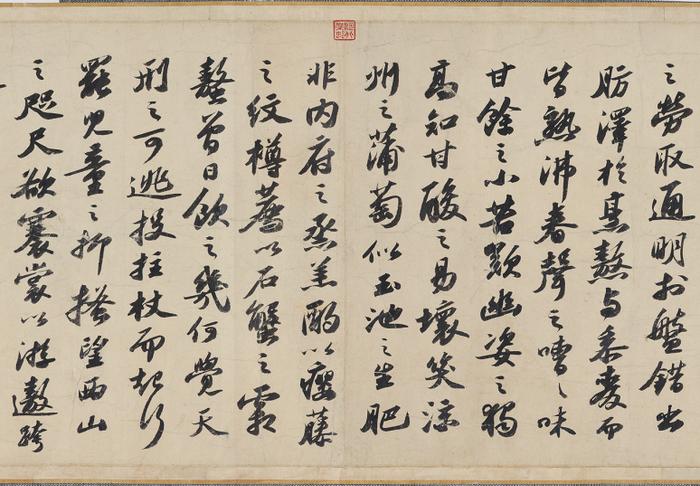 之勞取通明於盤錯出
肪澤於烹熬與黍麥而
皆熟沸春聲之嘈々味
甘餘之小苦歎幽姿之獨
高知甘酸之易壞笑涼
州之蒲萄似玉池之生肥
非內府之烝羔酌以癭藤
之紋樽薦以石蟹之霜
螯曾日飲之幾何覺天
刑之可逃投拄杖而起行
罷兒童之抑搔望西山
之咫尺欲褰裳以游遨跨